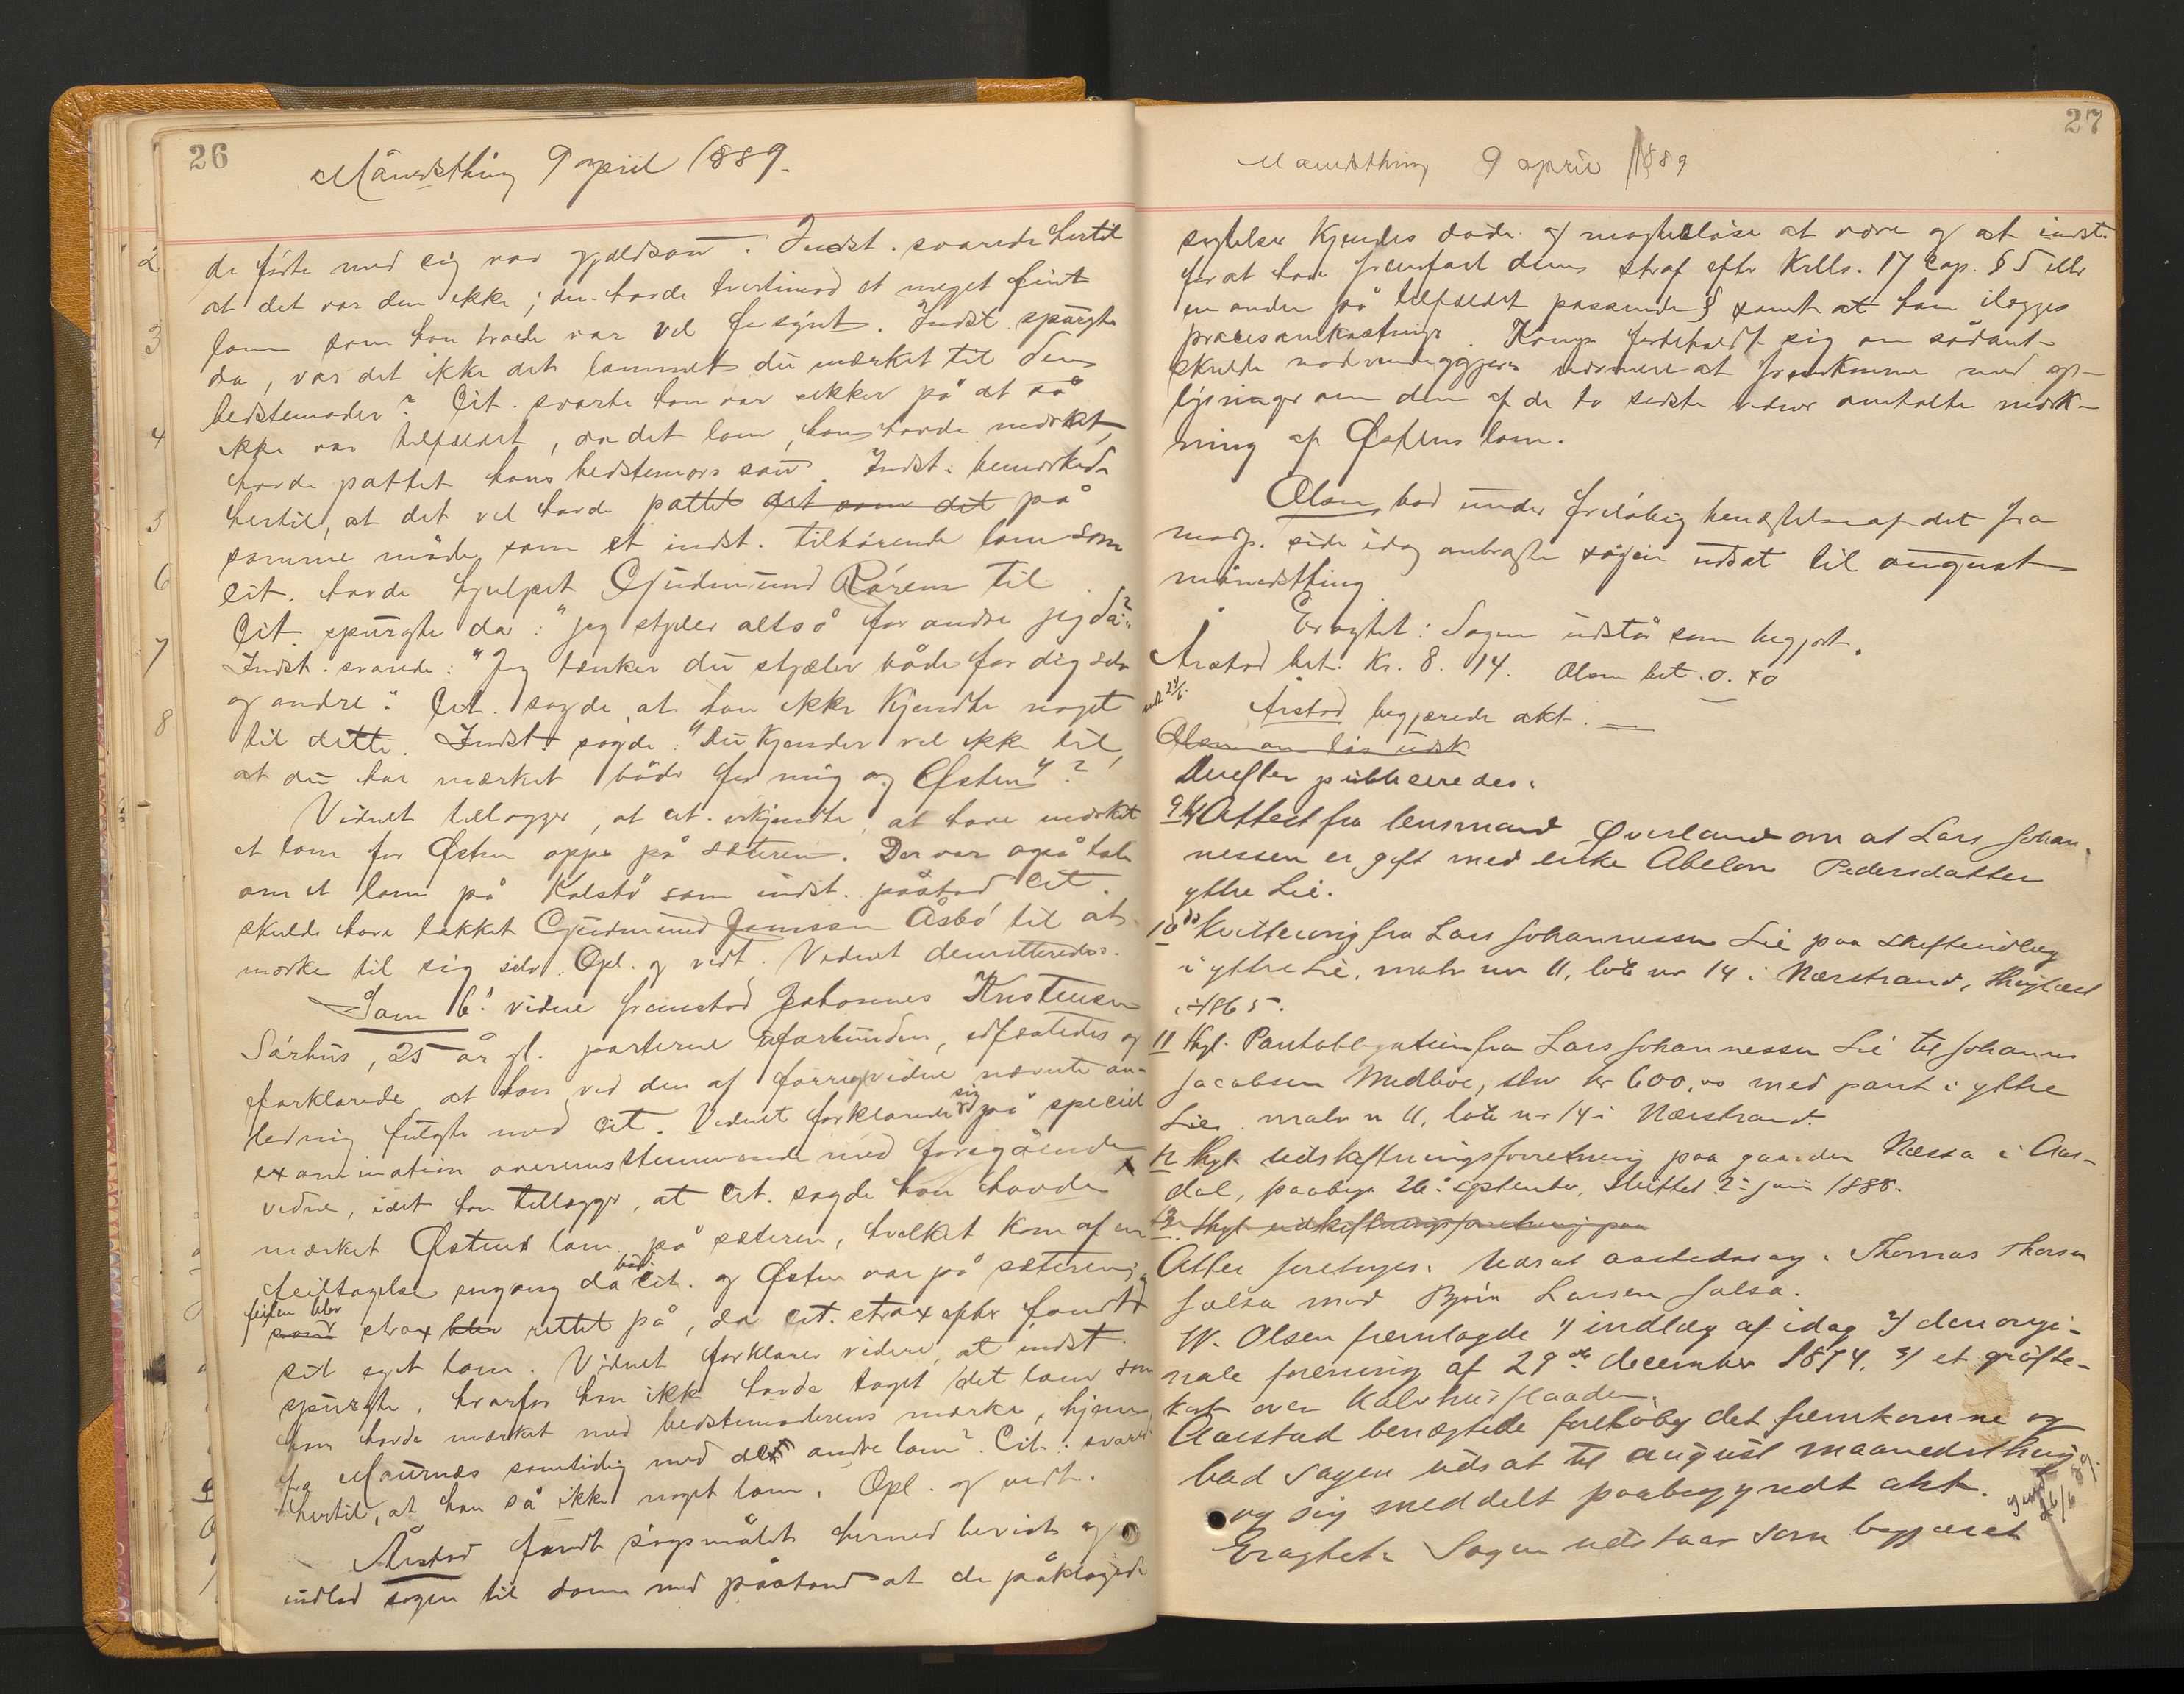 26
Månedsthing 9 april 1889.
de førte med sig var gjældsau. Indst. svarede hertil
at det var den ikke; den havde hvertimod et meget fint
lam som han troede var vel forsynt. Indst. spurgte
da, var det ikke det lammet du mærket til din
bedstemoder? Cit. svarte han var sikker på at så
ikke var tilfældet, da det lam, han havde mærket,
havde pattet hans bedstemors sau. Indst. bemærkede
hertil, at det vel havde pattet det som det på
samme måde som et indst. tilhørende lam som
cit. havde hjulpet Gudmund Rørem til
Cit. spurgte da: "jeg stjæler altså for andre jeg da?"
Indst. svarede: "Jeg tænker du stjæler både for dig selv
og andre." Cit. sagde, at han ikke kjendte noget
til dette. Indst. sagde: "Du kjender vel ikke til,
at du har mærket både for mig og Østen"?
Vidnet tillægger, at cit. erkjendte, at have mærket
et lam for Østen oppe på sæteren. Der var også tale
om et lam på Kolstø som indst. påstod cit.
skulde have lokket Gudmund Jonssen Åsbø til at
mærke til sig selv. Opl. og vedt. Vidnet demitteredes.
Som 6' vidne fremstod Johannes Kristensen
Sørhus, 25 år gl. parterne uforbunden, edfæstedes og
forklarede at han ved den af forrige vidne nævnte an-
ledning fulgte med cit. Vidnet forklarede sig på speciel
examination overensstemmende med foregående
vidne, idet han tillægger, at cit. sagde han havde
mærket Østens lam på sæteren, hvilket kom af en
feiltagelse engang da både cit. og Østen var på sæteren, og
feilen blev
som strax blev rettet på, da cit. strax efter fandt
sit eget lam. Vidnet forklarer videre, at indst.
spurgte, hvorfor han ikke havde taget det lam som
han havde mærket med bedstemoderens mærke, hjem
fra Maurnæs samtidig med det andre lam? Cit. svared
hertil, at han så ikke noget lam. Opl. og vedt.
Årstad fandt søgsmålet hermed bevist og
indlod sagen til doms med påstand at de påklagede
27
Maanedsthing 9 april 1889
sigtelser kjendes døde og magtesløse at være og at indst.
for at have fremført dem straf efter Krlls. 17 Cap. § 5 eller
en anden på tilfældet passende § samt at han ilægges
procesomkostninger. Komp. forbeholdt sig om sådant
skulde nødvendiggjøres nærmere at fremkomme med op-
lysninger om den af de to sidste vidner omtalte mærk-
ning af Østens lam.
Olsen bad under foreløbig benægtelse af det fra
modp. side idag anbragte sagen udsat til august
månedsthing
Eragtet: Sagen udstår som begjært.
Årstad bet. Kr. 8. 14. Olsen bet. 0. 40
Årstad begjærede akt. —
Olsen om løs udsk
Derefter publiceredes:
9 Attest fra lensmand Øverland om at Lars Johan-
nessen er gift med enke Abelone Pedersdatter
ythre Lie.
10 Kvittering fra Lars Johannessen Lie paa skifteudlæg
i ythre Lie, matr nr 11, løb nr 14 i Nærstrand, thinglæst
i 1865.
11 Thgl. Pantobligation fra Lars Johannessen Lie til Johannes
Jacobsen Medbøe, stor kr 600,00 med pant i ythre
Lie matr n 11, løb nr 14 i Nærstrand.
12 Thgl. Udskiftningsforretning paa gaarden Næssa i Aar-
dal, paabegr 26. september, sluttet 2. juni 1888.
13. Thgl. udskiftningsforretning paa
Atter foretoges: Udsat aastedssag: Thomas Thorsen
Jalsa mod Bjørn Larsen Jalsa.
W. Olsen fremlagde 1/ indlæg af idag 2/ den origi-
nale forening af 29de december 1874, 3/ et grøfte-
kart over Kalvhusflaaden.
Aarstad benægtede foreløbig det fremkomne og
bad sagen udsat til august maanedsthing
og sig meddelt paabegyndt akt.
26/6 89.
Eragtet: Sagen udstaar som begjæret